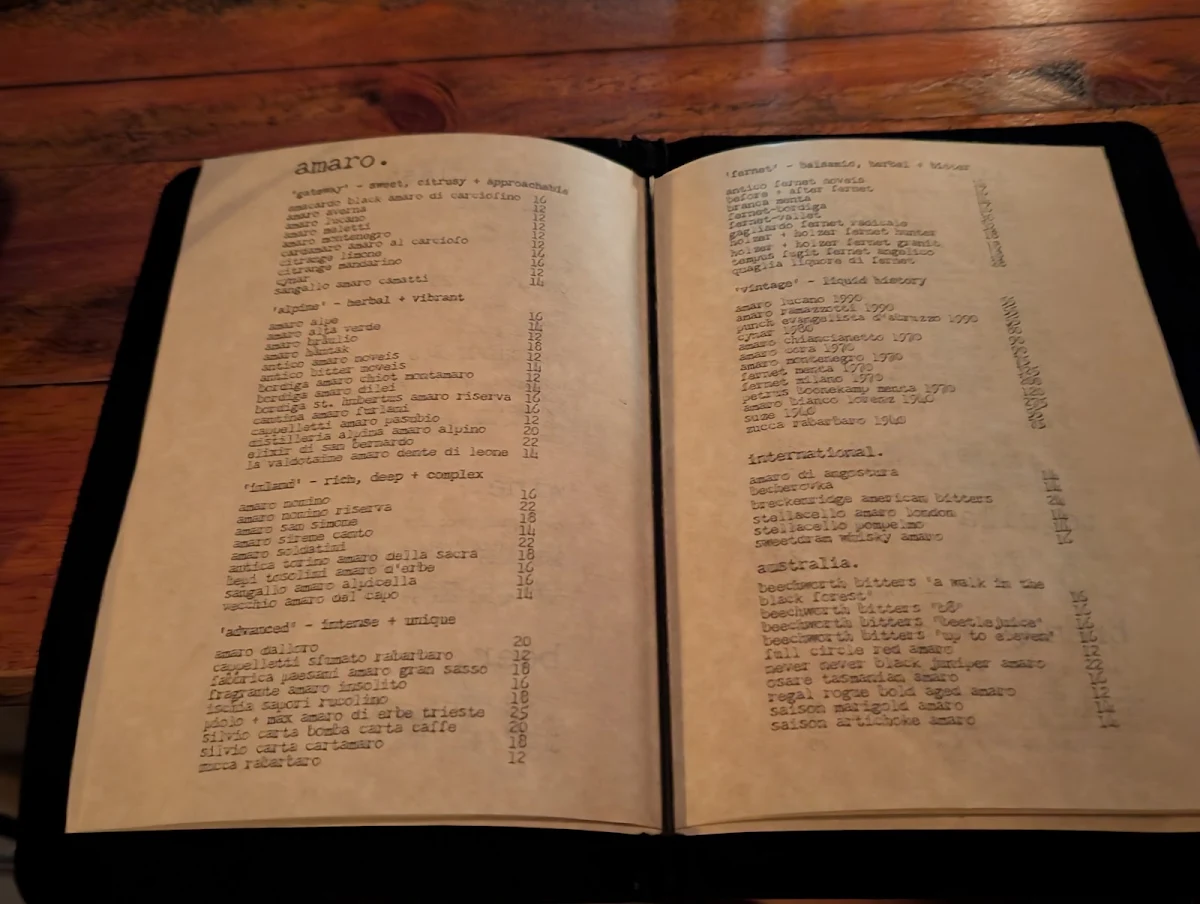 amaro.
'gateway' - sweet, citrusy + approachable
amacardo black amaro di carciofino 16
amaro averna 12
amaro lucano 12
amaro maletti 12
amaro montenegro 12
cardamaro amaro al carciofo 12
citrange limone 16
citrange mandarino 16
cynar 12
sangallo amaro camatti 14
'alpine' - herbal + vibrant
amaro alpe 16
amaro alta verde 14
amaro braulio 12
amaro bäntak 18
antico amaro noveis 12
antico bitter noveis 14
bordiga amaro chiot montamaro 12
bordiga amaro dilei 14
bordiga st. hubertus amaro riserva 16
cantina amaro furlani 16
cappelletti amaro pasubio 12
distilleria alpina amaro alpino 20
elixir di san bernardo 22
la valdotaine amaro dente di leone 14
'inland' - rich, deep + complex
amaro nonino 16
amaro nonino riserva 22
amaro san simone 18
amaro sirene canto 14
amaro soldatini 22
antica torino amaro della sacra 18
bepi tosolini amaro d'erbe 16
sangallo amaro alpicella 16
vecchio amaro del capo 14
'advanced' - intense + unique
amaro dalloro 20
cappelletti sfumato rabarbaro 12
fabbrica paesani amaro gran sasso 18
fragrante amaro insolito 16
ischia sapori rucolino 18
piolo + max amaro di erbe trieste 25
silvio carta bomba carta caffe 20
silvio carta cartamaro 18
zucca rabarbaro 12
'fernet' - balsamic, herbal + bitter
antico fernet noveis
before + after fernet
branca menta
fernet-bordiga
fernet-vallet
gagliardo fernet radicale
holzer + holzer fernet hunter
holzer + holzer fernet granit
tempus fugit fernet angelico
quaglia liquore di fernet
'vintage' - liquid history
amaro lucano 1990
amaro ramazzotti 1990
punch evangelista d'abruzzo 1990
cynar 1980
amaro chiancianetto 1970
amaro cora 1970
amaro montenegro 1970
fernet menta 1970
fernet milano 1970
petrus boonekamp menta 1970
amaro bianco lorenz 1940
suze 1940
zucca rabarbaro 1940
international.
amaro di angostura
becherovka
breckenridge american bitters
stellacello amaro london
stellacello pompelmo
sweetdram whisky amaro 16
australia.
beechworth bitters 'a walk in the
black forest' 16
beechworth bitters "b8" 16
beechworth bitters "beetlejuice" 16
beechworth bitters "up to eleven" 16
full circle red amaro 12
never never black juniper amaro 22
osare tasmanian amaro
regal rogue bold aged amaro 12
saison marigold amaro
saison artichoke amaro